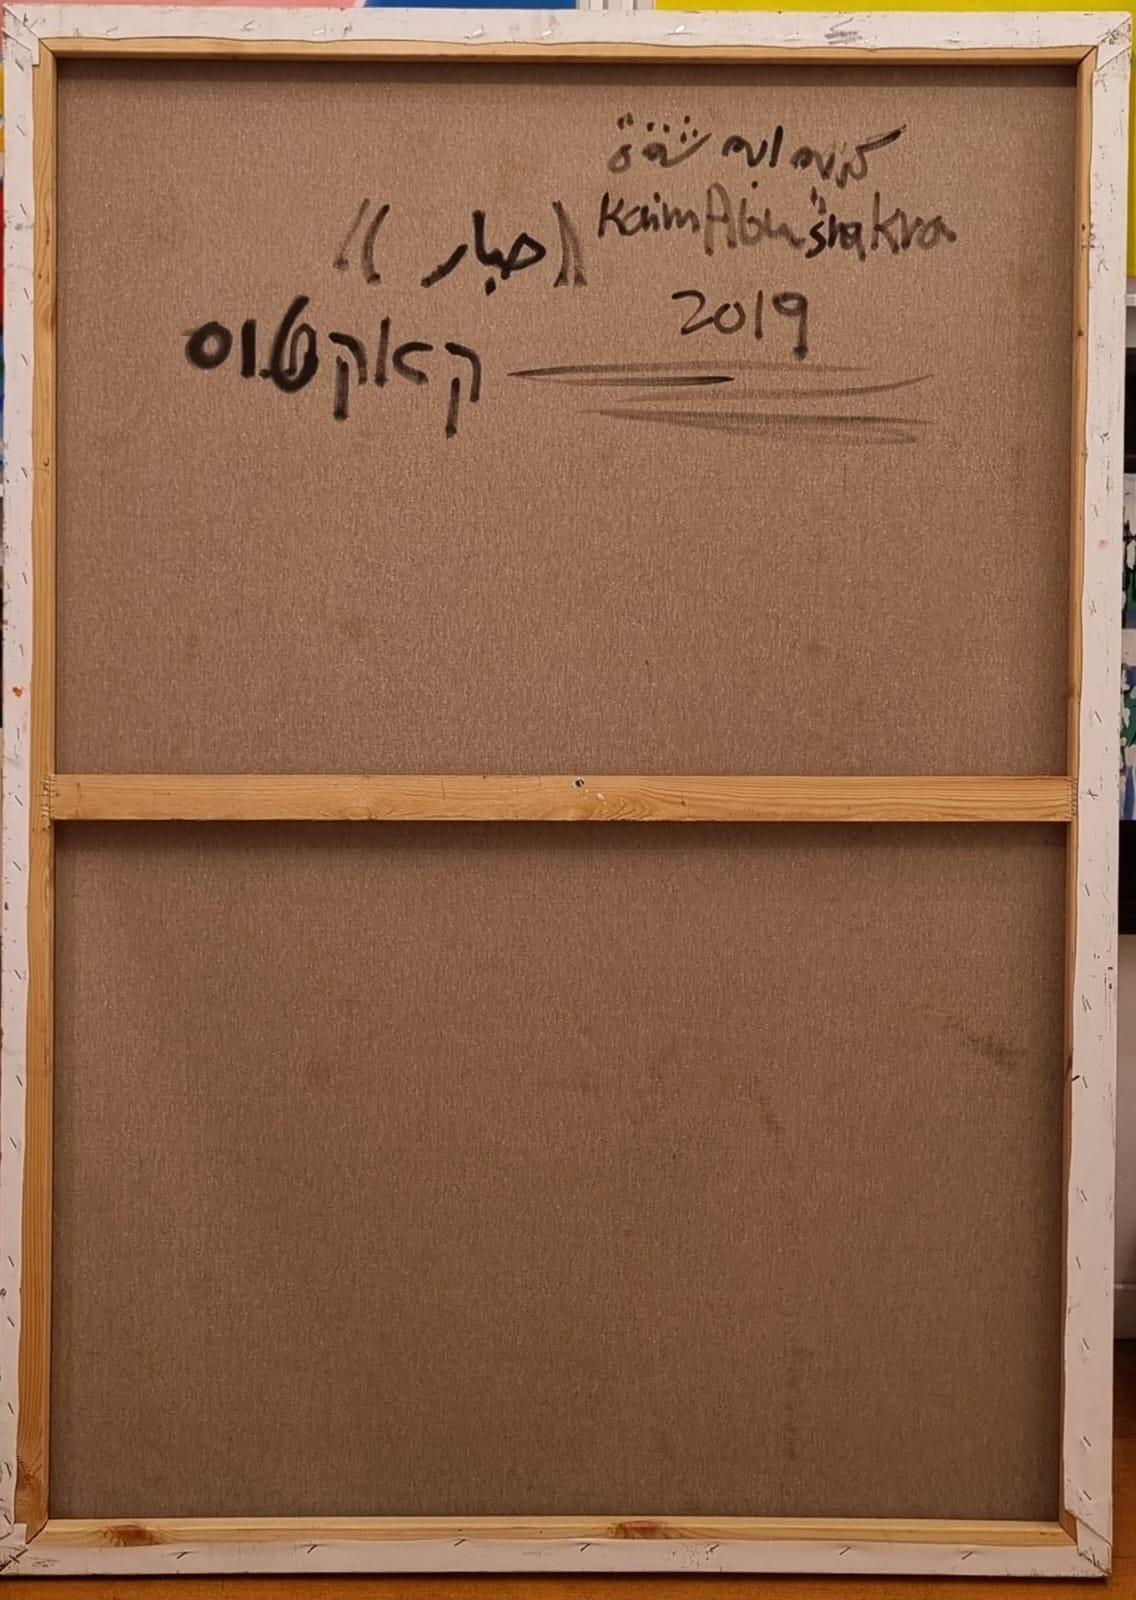 كريم ابو شقرة
Karim Abu shakra
2019
((صبار))
קאקטוס